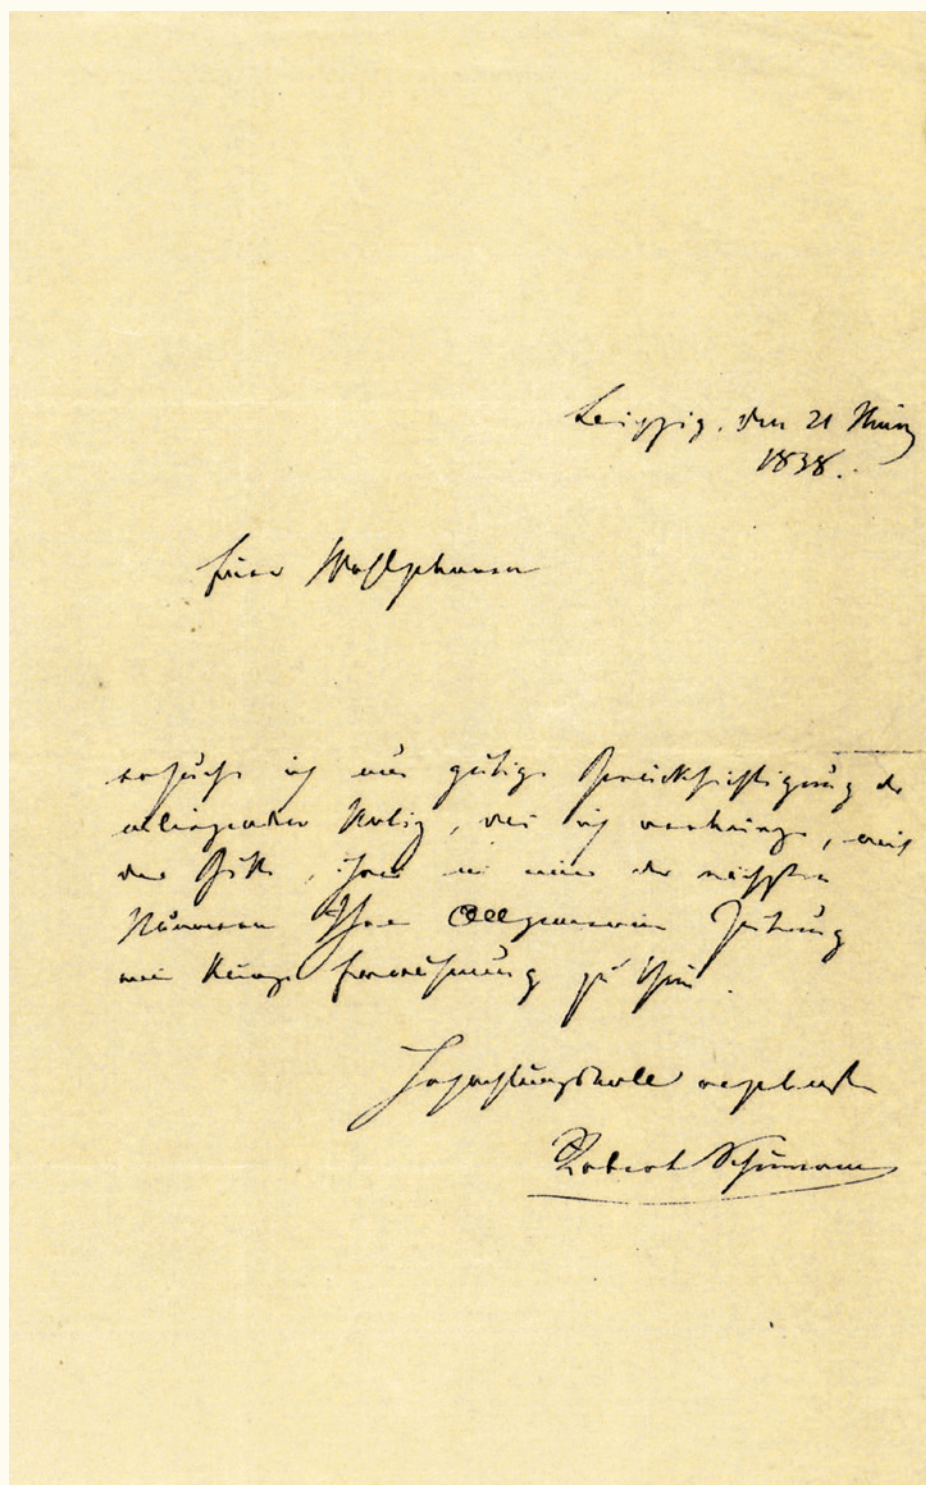 Leipzig, den 21 März
1838.
Euer Wohlgeboren
ersuche ich um gütige Berücksichtigung der
beiliegenden Notiz, die ich verbürge, mit
der Bitte, ihrer in einer der nächsten
Nummern Ihrer Allgemeinen Zeitung
eine kurze Erwähnung zu thun.
Hochachtungsvoll ergebenst
Robert Schumann